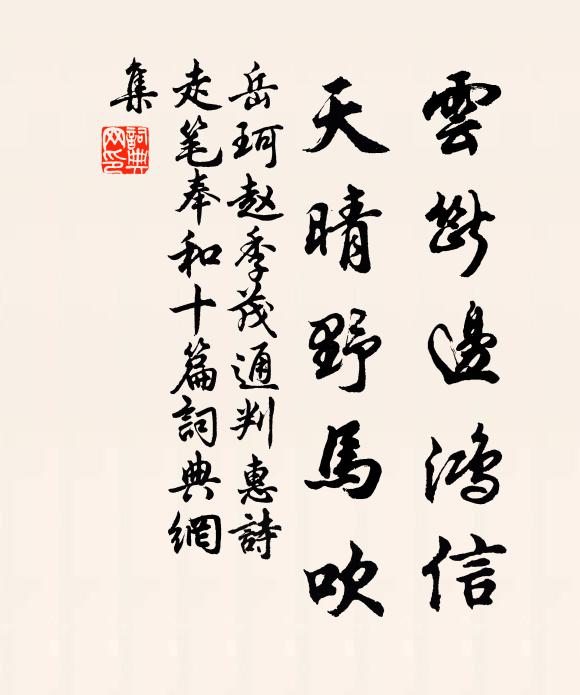 雲斷邊鴻信
天晴野馬吹
岳珂赵季茂通判惠詩
走笔奉和十篇詞典網
集
詞典网印